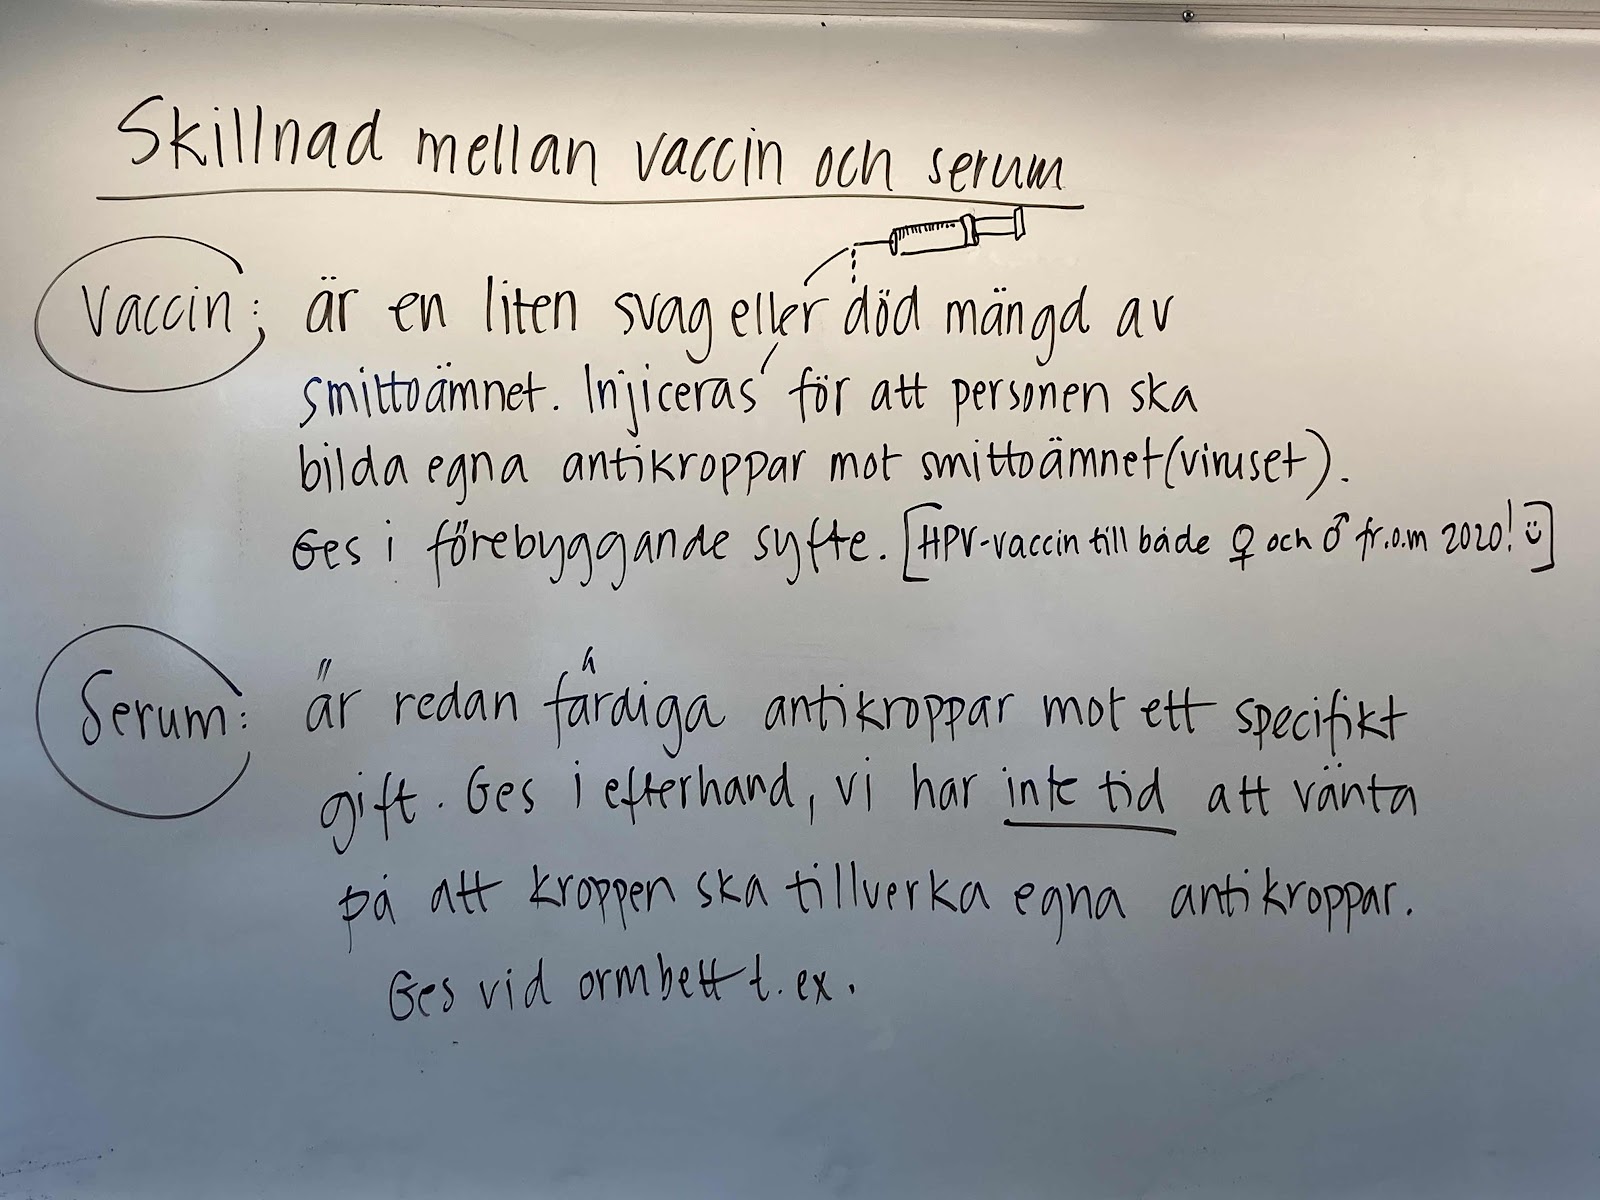 Skillnad mellan vaccin och serum
Vaccin: är en liten svag eller död mängd av
smittoämnet. Injiceras för att personen ska
bilda egna antikroppar mot smittoämnet (viruset).
Ges i förebyggande syfte. [HPV-vaccin till både ♀ och ♂ fr.o.m 2020! ☺]
Serum: är redan färdiga antikroppar mot ett specifikt
gift. Ges i efterhand, vi har inte tid att vänta
på att kroppen ska tillverka egna antikroppar.
Ges vid ormbett t.ex.